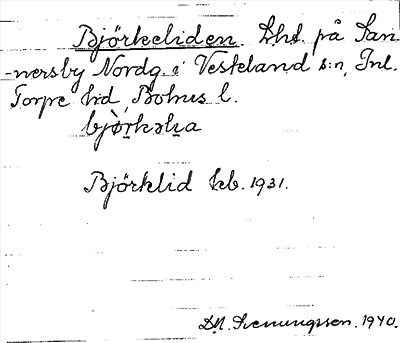 Björkeliden. Lht. på San
-nersby Nordg. i Veskeland s:n, Inl.
Torpe hd, Bohus l.
bjò̤rkəlia
Björklid kb. 1931.
D.N. Svenungsson. 1940.